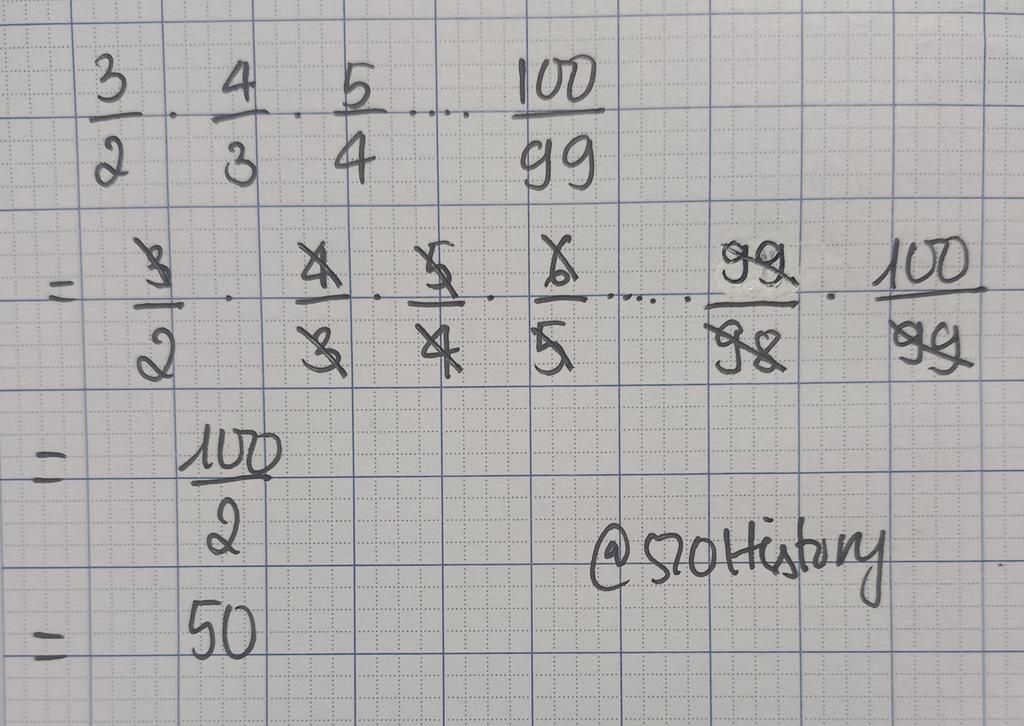 3/2 · 4/3 · 5/4 .... 100/99
= 3/2 · 4/3 · 5/4 · 6/5 .... · 99/98 · 100/99
= 100/2
@570History
= 50